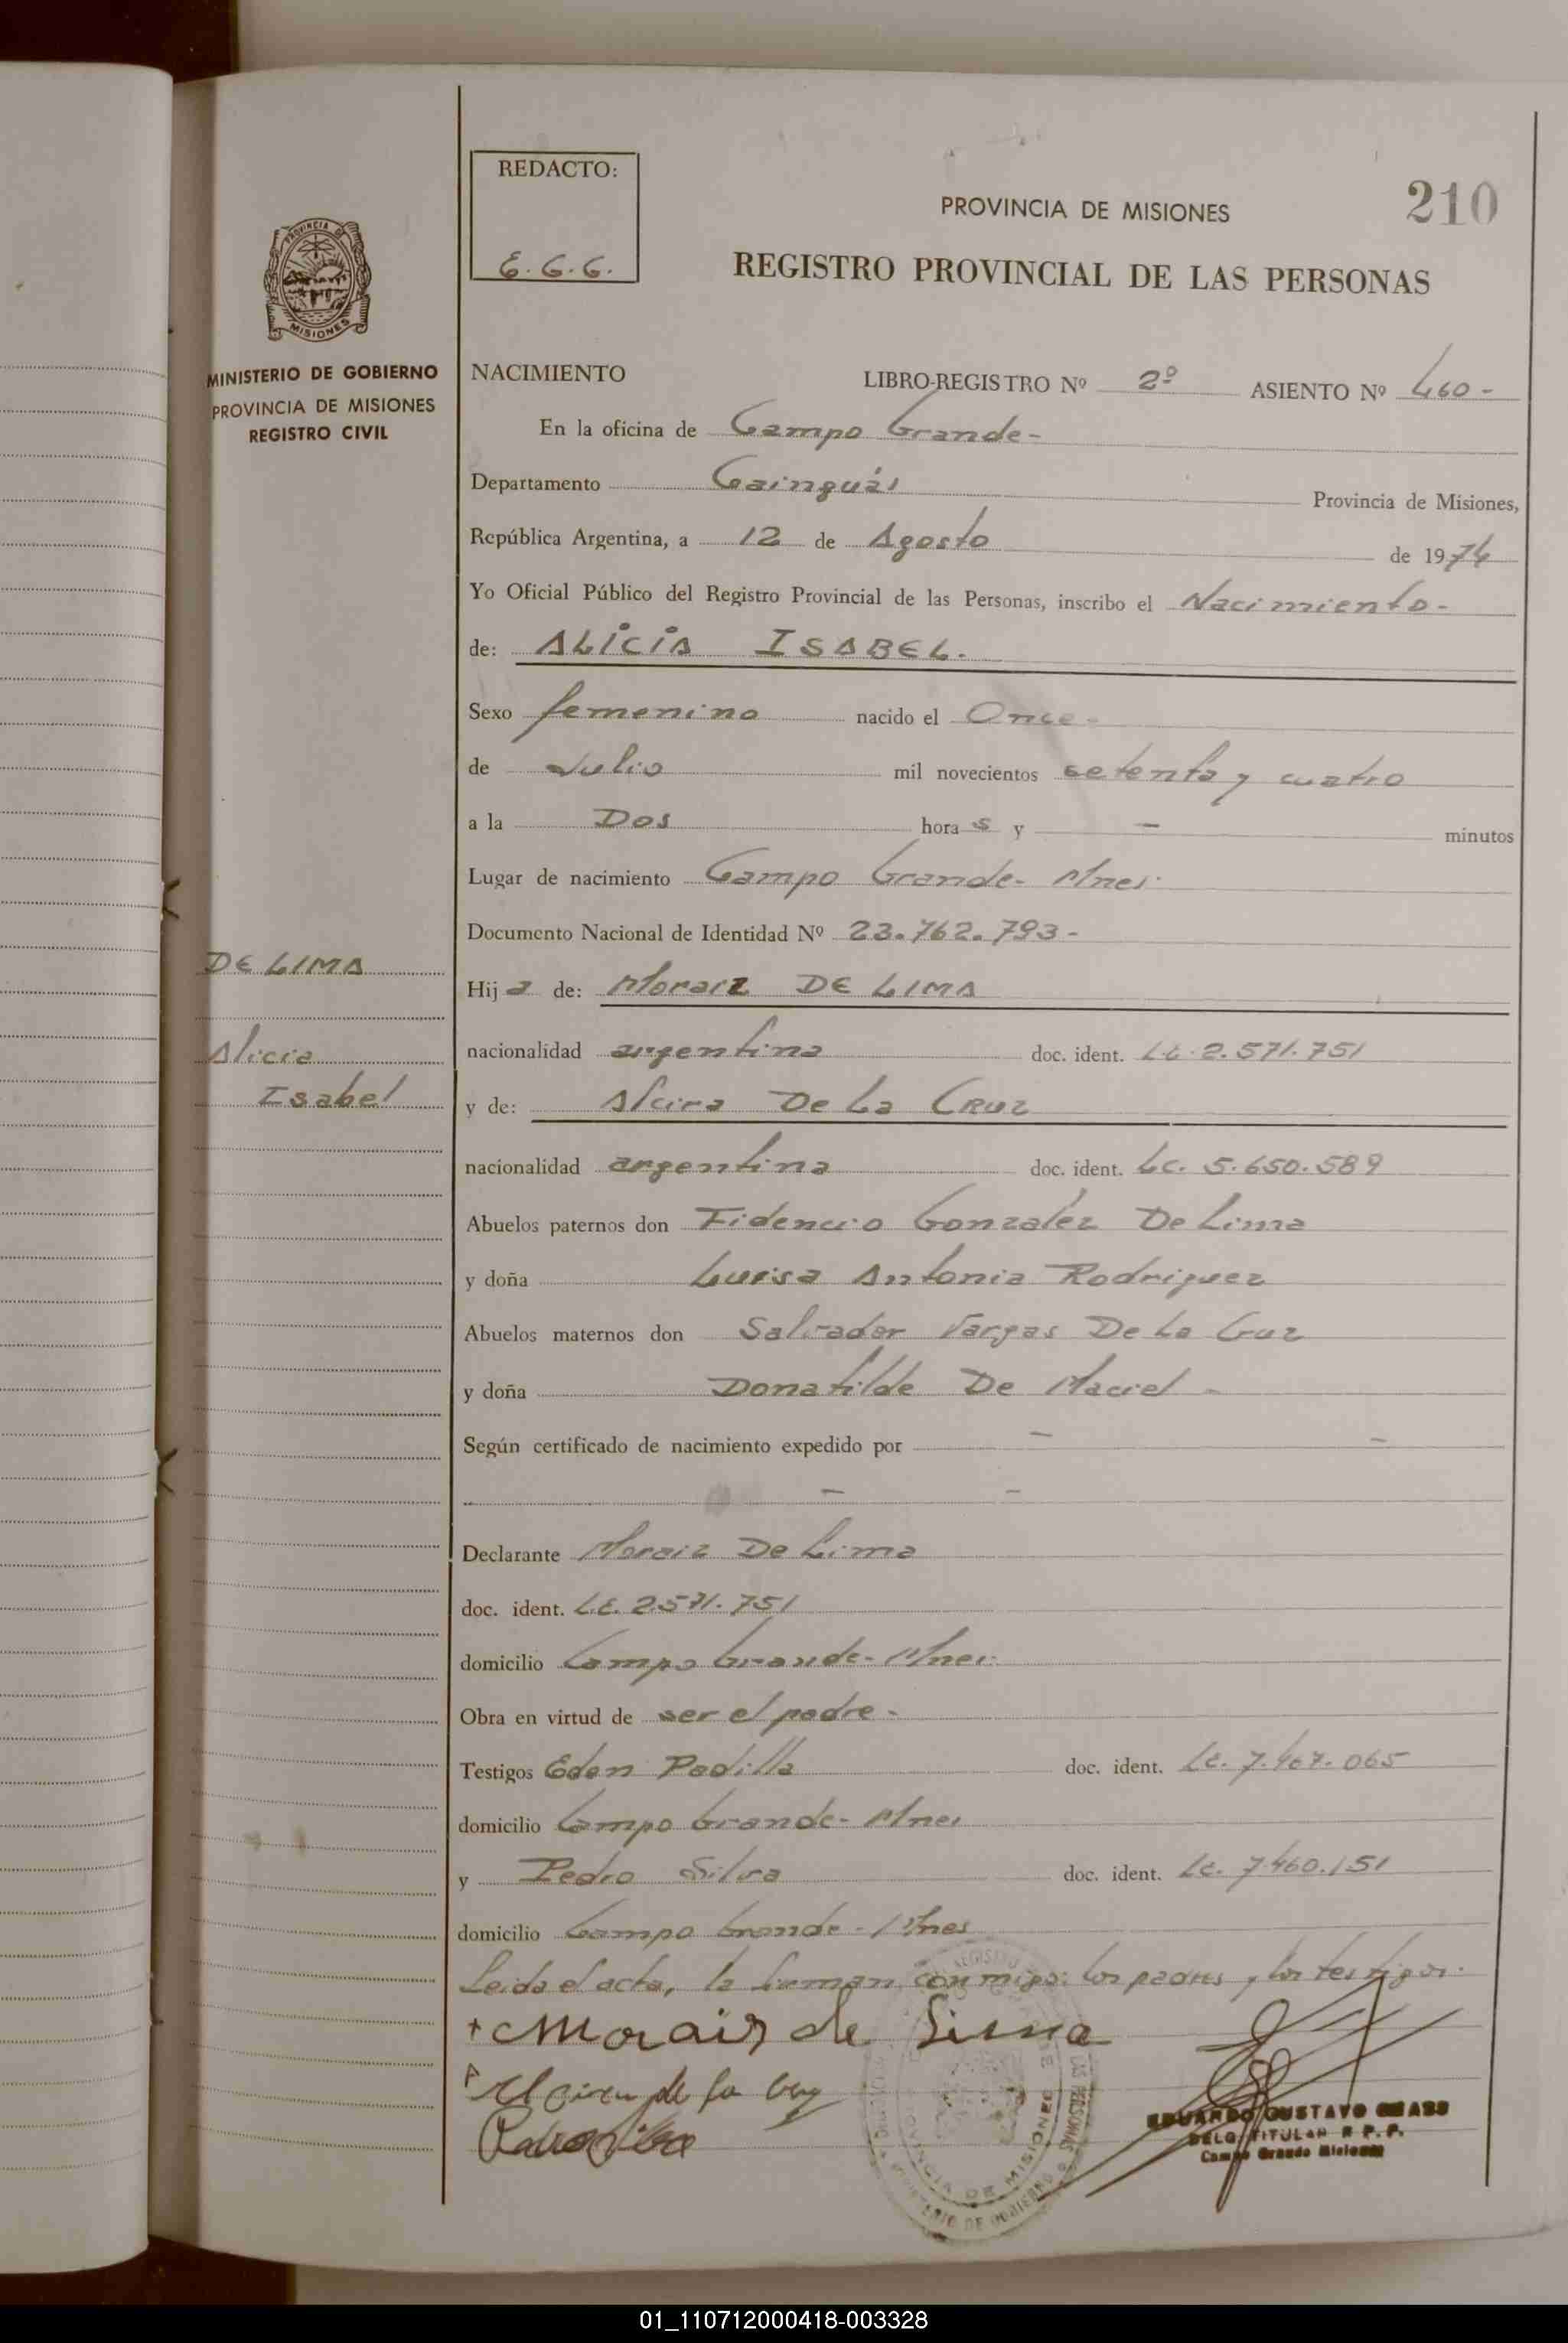 REDACTO:
E.G.G.
PROVINCIA DE MISIONES
210
REGISTRO PROVINCIAL DE LAS PERSONAS
PROVINCIA DE
MISIONES
MINISTERIO DE GOBIERNO
PROVINCIA DE MISIONES
REGISTRO CIVIL
NACIMIENTO LIBRO-REGISTRO Nº 2º ASIENTO Nº 460-
En la oficina de Campo Grande-
Departamento Cainguás Provincia de Misiones,
República Argentina, a 12 de Agosto de 1974
Yo Oficial Público del Registro Provincial de las Personas, inscribo el Nacimiento-
de: ALICIA ISABEL.
Sexo femenino nacido el Once-
de Julio mil novecientos setenta y cuatro
a la Dos horas y - minutos
Lugar de nacimiento Campo Grande- Mnes.
Documento Nacional de Identidad Nº 23.762.793-
DE LIMA
Alicia
Isabel
Hija de: Moraiz DE LIMA
nacionalidad argentina doc. ident. L.E. 2.571.751
y de: Alcira De La CRUZ
nacionalidad argentina doc. ident. LC. 5.650.589
Abuelos paternos don Fidencio Gonzalez De Lima
y doña Luisa Antonia Rodriguez
Abuelos maternos don Salvador Vargas De La Cruz
y doña Donatilde De Maciel-
Según certificado de nacimiento expedido por - -
- -
Declarante Moraiz De Lima
doc. ident. L.E. 2.571.751
domicilio Campo Grande- Mnes.
Obra en virtud de ser el padre-
Testigos Eden Padilla doc. ident. LE. 7.467.065
domicilio Campo Grande- Mnes
y Pedro Silva doc. ident. LE. 7.460.151
domicilio Campo Grande- Mnes
Leida el acta, la firman conmigo: los padres y los testigos.
+ Morais de Lima
Alcira de la Cruz
Pedro Silva
EDUARDO GUSTAVO
DELG. TITULAR R. P. P.
Campo Grande Misiones
PROVINCIA DE MISIONES
MINISTERIO DE GOBIERNO
01_110712000418-003328